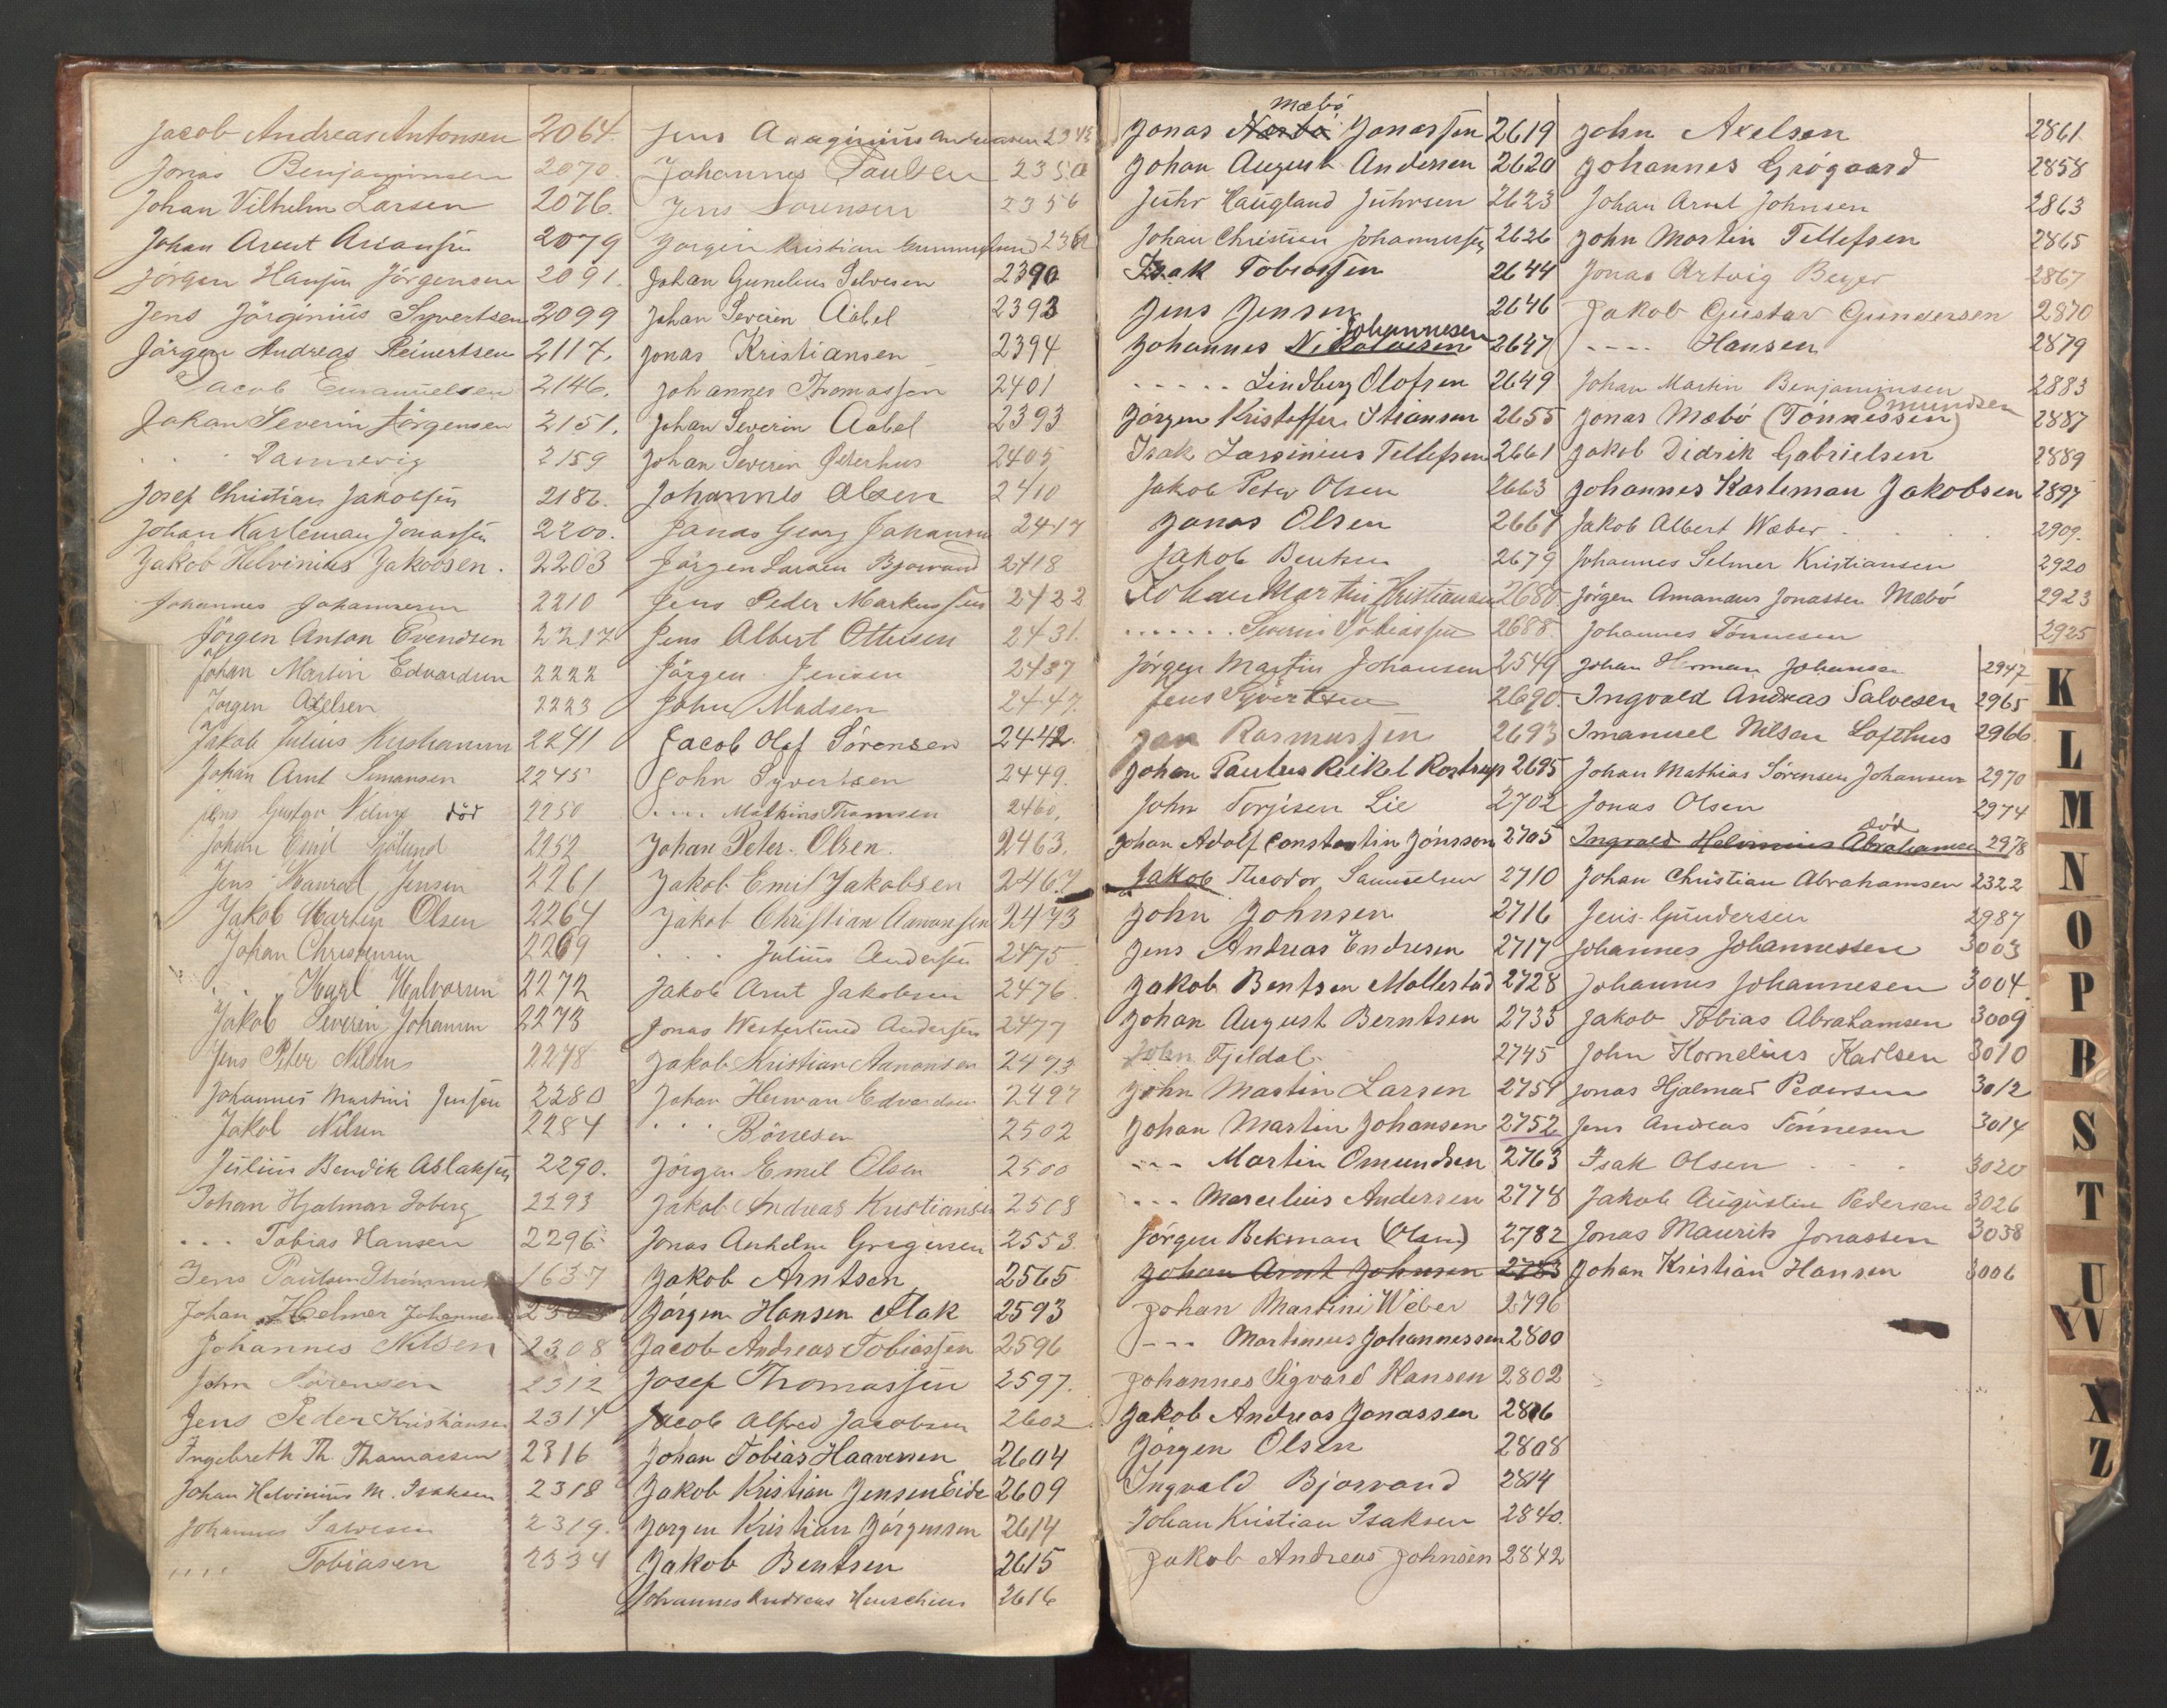 Jacob Andreas Antonsen 2064.
Jonas Benjaminsen 2070.
Johan Vilhelm Larsen 2076.
Johan Arnt 2079
Jörgen Hansen Jörgensen 2091.
Jens Jörginius Syvertsen 2099
Jörgen Andreas Reinertsen 2117.
Jacob Emanuelsen 2146.
Johan Severin Jörgensen 2151.
. . Dannevig 2159
Josef Christian Jakobsen 2186.
Johan Karleman Jonassen 2200.
Jakob Helvinius Jakobsen. 2203
Johannes Johannesen 2210
Jörgen Anton Evendsen 2217
Johan Martin Edvardsen 2222
Jörgen Axelsen 2223
Jakob Julius Kristiansen 2241
Johan Arnt Simonsen 2245
Jens Gustav död 2250
Johan Emil Sjölund 2252
Jens Jensen 2261
Jakob Martin Olsen 2264
Johan Christensen 2269
. . Karl Halvorsen 2272
Jakob Severin Johansen 2273
Jens Peter Nilsen 2278
Johannes Martini Jensen 2280
Jakob Nilsen 2284
Julius Bendik Aslaksen 2290.
Johan Hjalmar Soberg 2293
. . . Tobias Hansen 2296
Jens Paulsen 1637
Johan Helmer Johannesen
Johannes Nilsen 2308
John Sörensen 2312
Jens Peder Kristiansen 2314
Ingebreth Th. Thomassen 2316
Johan Helvinius M. Isaksen 2318
Johannes Salvesen 2319.
. . . . Tobiasen 2334
Jens Andreasen
Johannes Paulsen 2350
Jens Sorensen 2356
Jörgen Kristian
Johan Gunelius Salvesen 2390
Johan Severin Aabel 2393
Jonas Kristiansen 2394
Johannes Thomassen 2401
Johan Severin Aabel 2393
Johan Severin Osterhus 2405
Johannes Olsen 2410
Jonas Georg Johansen 2417
Jörgen Larsen Bjorvand 2418
Jens Peder Markussen 2422
Jens Albert Ottersen 2431.
Jörgen Jensen 2437
John Madsen 2447.
Jacob Olaf Sörensen 2442.
John Syvertsen 2449.
. . . . Mathias Thomsen 2460.
Johan Peter Olsen. 2463.
Jakob Emil Jakobsen 2467
Jakob Christian Aanonsen 2473
. . . Julius Andersen 2475
Jakob Arnt Jakobsen 2476.
Jonas Westerlund Andersen 2477
Jakob Kristian Aanonsen 2473
Johan Herman Edvardsen 2497
. . . Börresen 2502
Jörgen Emil Olsen 2500
Jakob Andreas Kristiansen 2508
Jonas Anhelm Gregersen 2553.
Jakob Arntsen 2565
Jörgen Hansen Flak 2593
Jacob Andreas Tobiassen 2596
Josef Thomassen 2597.
Jacob Alfred Jacobsen 2602
Johan Tobias Haaversen 2604
Jakob Kristian Jensen Eide 2609
Jörgen Kristian Jörgensen 2614
Jakob Bentsen 2615
Johannes Andreas 2616
Mæbö
Jonas Jonassen 2619
Johan August Andersen 2620
Juhr Haugland Juhrsen 2623
Johan Christian Johannessen 2626
Isak Tobiassen 2644
Jens Jensen 2646
Johannesen
Johannes Nikolaisen 2647
. . . . . Lindberg Olofsen 2649
Jörgen Kristoffer Stiansen 2655
Isak Larsinius Tellefsen 2661
Jakob Peter Olsen 2663
Jonas Olsen 2667
Jakob Bentsen 2679
Johan Martin Kristiansen 2680
. . . . . . . Severin Tobiassen 2688.
Jörgen Martin Johansen 2549
Jens Syvertsen 2690.
Jan Rasmussen 2693
Johan Paulus Rickel Rostrup 2695
John Torjisen Lie 2702
Johan Adolf Constantin Jónsson 2705
Jakob Theodor Samuelsen 2710
John Johnsen 2716
Jens Andreas Endresen 2717
Jakob Bentsen Mollestad 2728
Johan August Berntsen 2735
John Fjeldal 2745
John Martin Larsen 2751
Johan Martin Johansen 2752
- - - Martin Omundsen 2763
- - - Marselius Andersen 2778
Jörgen Bekman (Olsen) 2782
Johan Arnt Johnsen 2783
Johan Martini Weber 2796
- - - Martinius Johannessen 2800
Johannes Sigvard Hansen 2802
Jakob Andreas Jonassen 2806
Jörgen Olsen 2808
Ingvald Bjorvand 2814
Johan Kristian Isaksen 2840.
Jakob Andreas Johnsen 2842
John Axelsen 2861.
Johannes Grögaard 2858
Johan Arnt Johnsen 2863
John Martin Tellefsen 2865
Jonas Artvig Beyer 2867
Jakob Gustav Gundersen 2870
- - - - Hansen 2879
Johan Martin Benjaminsen 2883
Omundsen
Jonas Mæbö (Tönnessen) 2887
Jakob Didrik Gabrielsen 2889
Johannes Karleman Jakobsen 2897
Jakob Albert Wæber 2909.
Johannes Selmer Kristiansen 2920
Jörgen Amandus Jonassen Mæbö 2923
Johannes Tönnesen 2925
Johan Herman Johansen 2947
Ingvald Andreas Salvesen 2965
Imanuel Nilsen Lofthus 2966
Johan Mathias Sörensen Johansen 2970
Jonas Olsen 2974
död
Ingvald Helvinius Abrahamsen 2978
Johan Christian Abrahamsen 2322
Jens Gundersen 2987
Johannes Johannessen 3003
Johannes Johannesen 3004.
Jakob Tobias Abrahamsen 3009
John Kornelius Karlsen 3010
Jonas Hjalmar Pedersen 3012
Jens Andreas Tönnesen 3014
Isak Olsen 3020
Jakob Augustin Pedersen 3026
Jonas Maurits Jonassen 3038
Johan Kristian Hansen 3006
K
L
M
N
O
P
R
S
T
U
W
X
Z